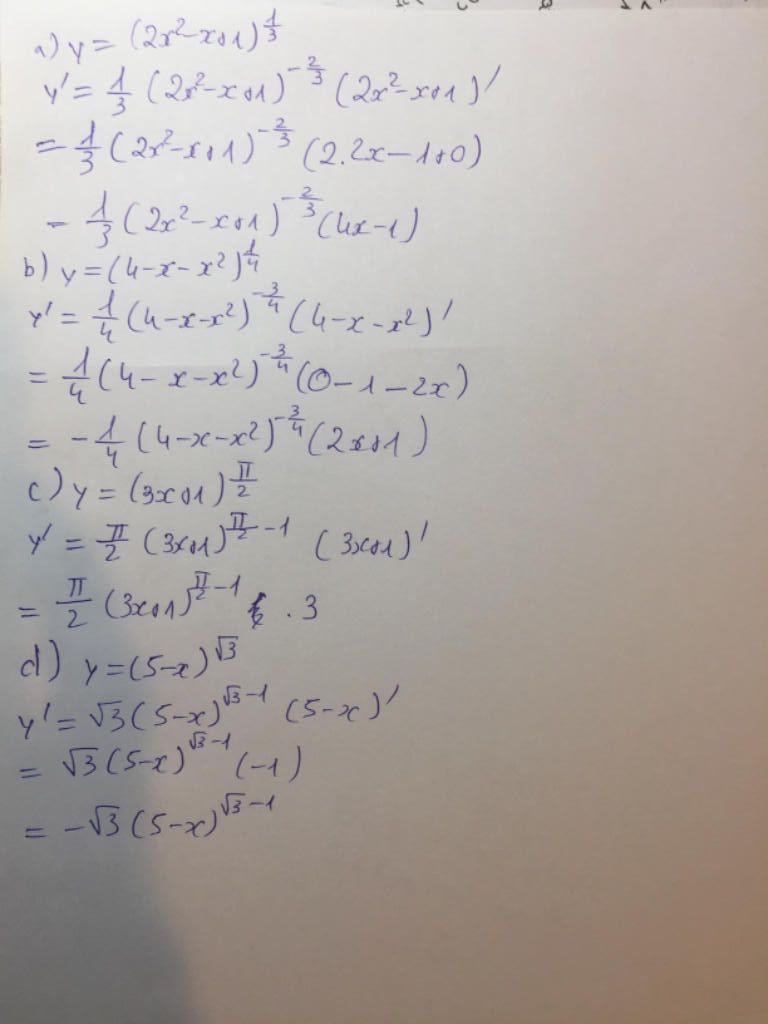 a) y = (2x²-x+1)^{1/3}
y' = 1/3 (2x²-x+1)^{-2/3} (2x²-x+1)'
= 1/3 (2x²-x+1)^{-2/3} (2.2x-1+0)
- 1/3 (2x²-x+1)^{-2/3} (4x-1)
b) y = (4-x-x²)^{1/4}
y' = 1/4 (4-x-x²)^{-3/4} (4-x-x²)'
= 1/4 (4-x-x²)^{-3/4} (0-1-2x)
= -1/4 (4-x-x²)^{-3/4} (2x+1)
c) y = (3x+1)^{π/2}
y' = π/2 (3x+1)^{π/2-1} (3x+1)'
= π/2 (3x+1)^{π/2-1} . 3
d) y = (5-x)^{√3}
y' = √3 (5-x)^{√3-1} (5-x)'
= √3 (5-x)^{√3-1} (-1)
= -√3 (5-x)^{√3-1}